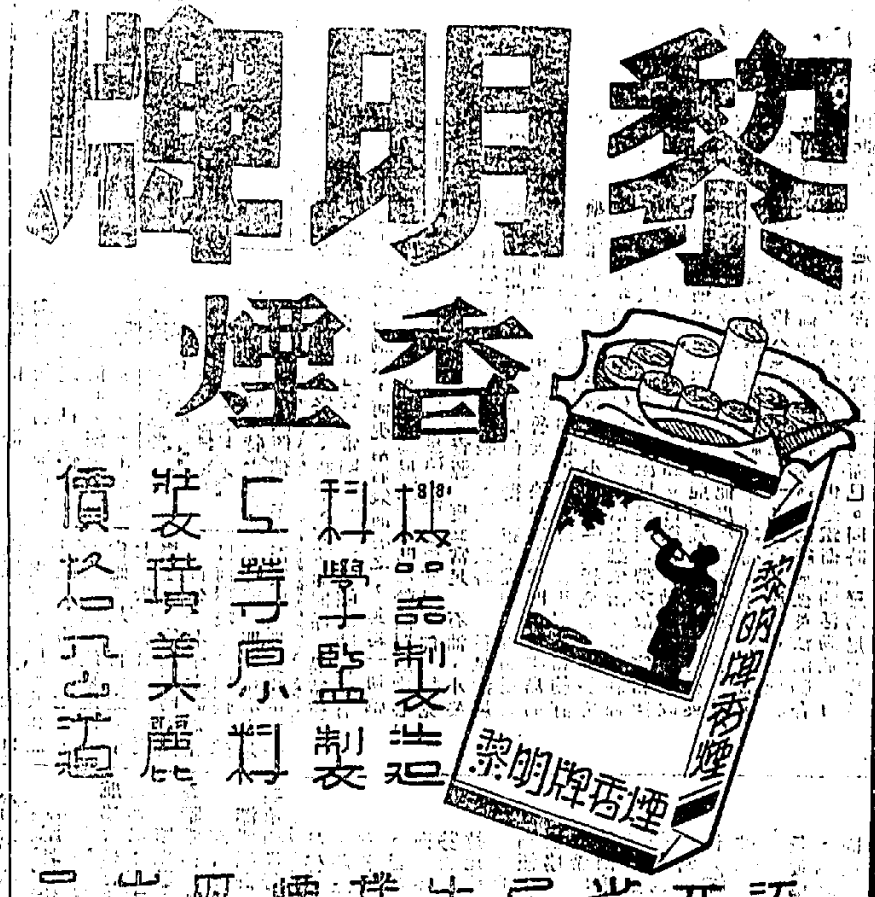 黎明牌
香煙
機器製造
科學監製
上等原料
裝璜美麗
價格公道
黎明牌香煙
黎明牌香煙